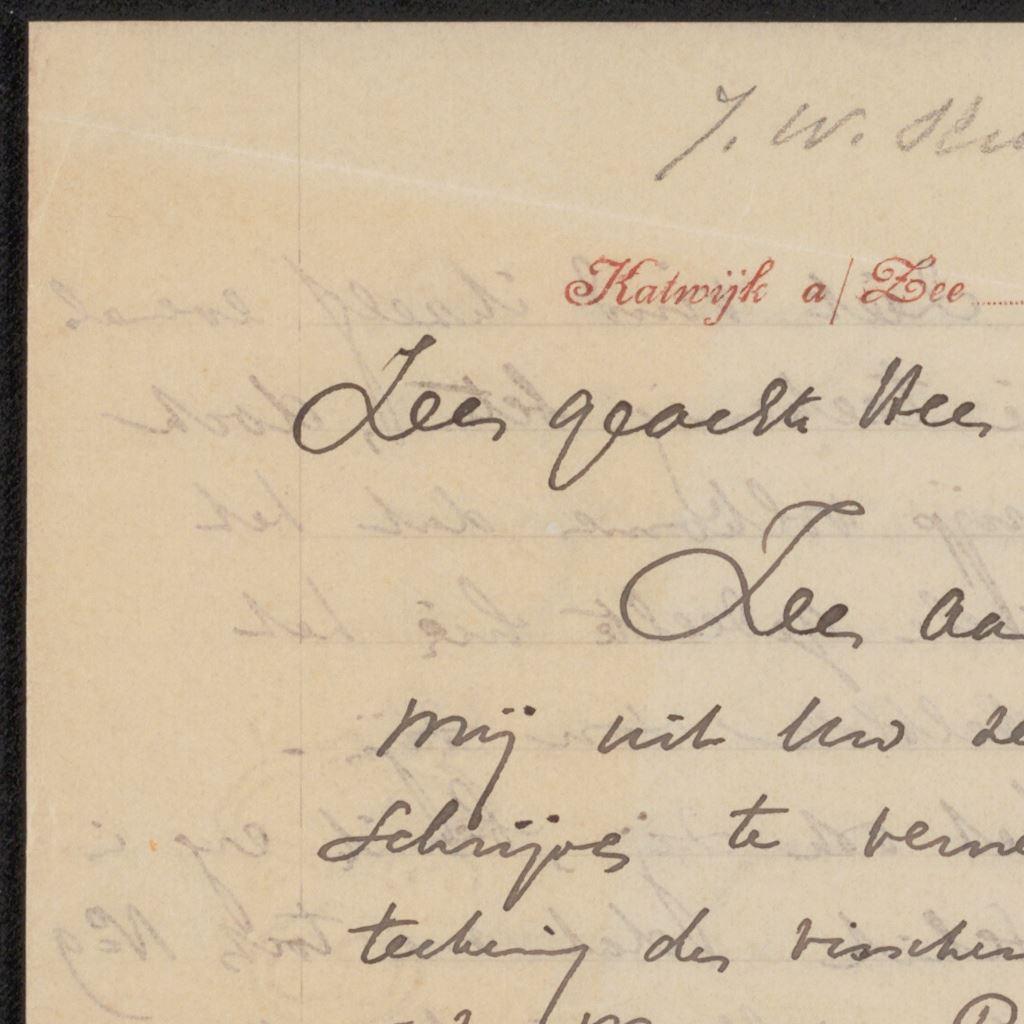 J. W.
Katwijk a/Zee
Zeer geachte Heer
Zeer aa
mij uit Uw ze
schrijven te verne
teekening der visschers